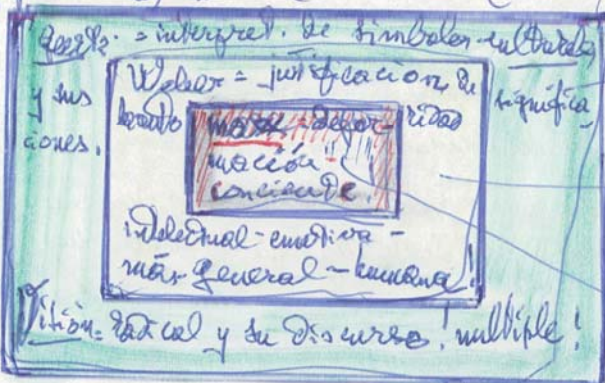 Geertz = interpret. de símbolos culturales
Weber = justificación de
y sus significa-
autoridad
ciones.
Marx = defor-
mación
conciente.
intelectual - emotiva -
más general - humana!
Visión = radical y su Discurso! multiple!